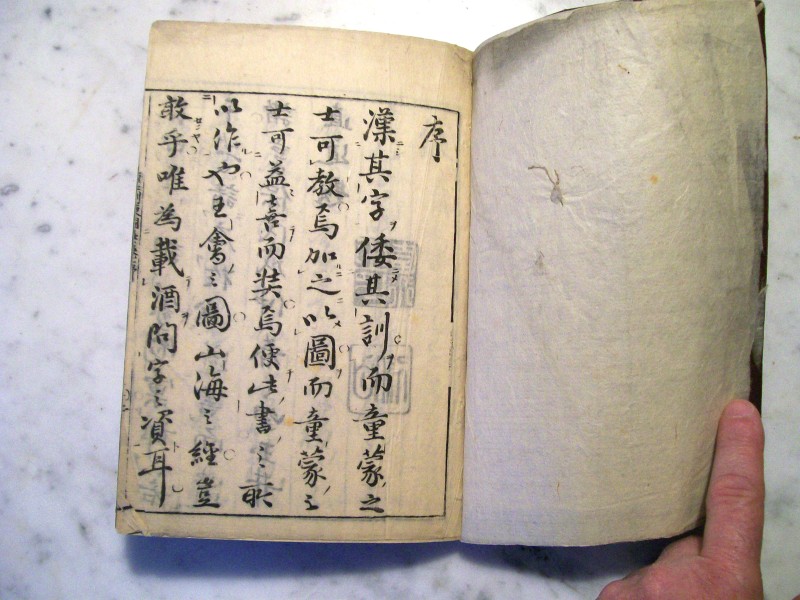 序
漢其字倭其訓而童蒙之
士可教焉加之以圖而童蒙之
士可益喜而奘焉便此書之所
以作也王會之圖山海之經豈
敢乎唯為載酒問字之資耳